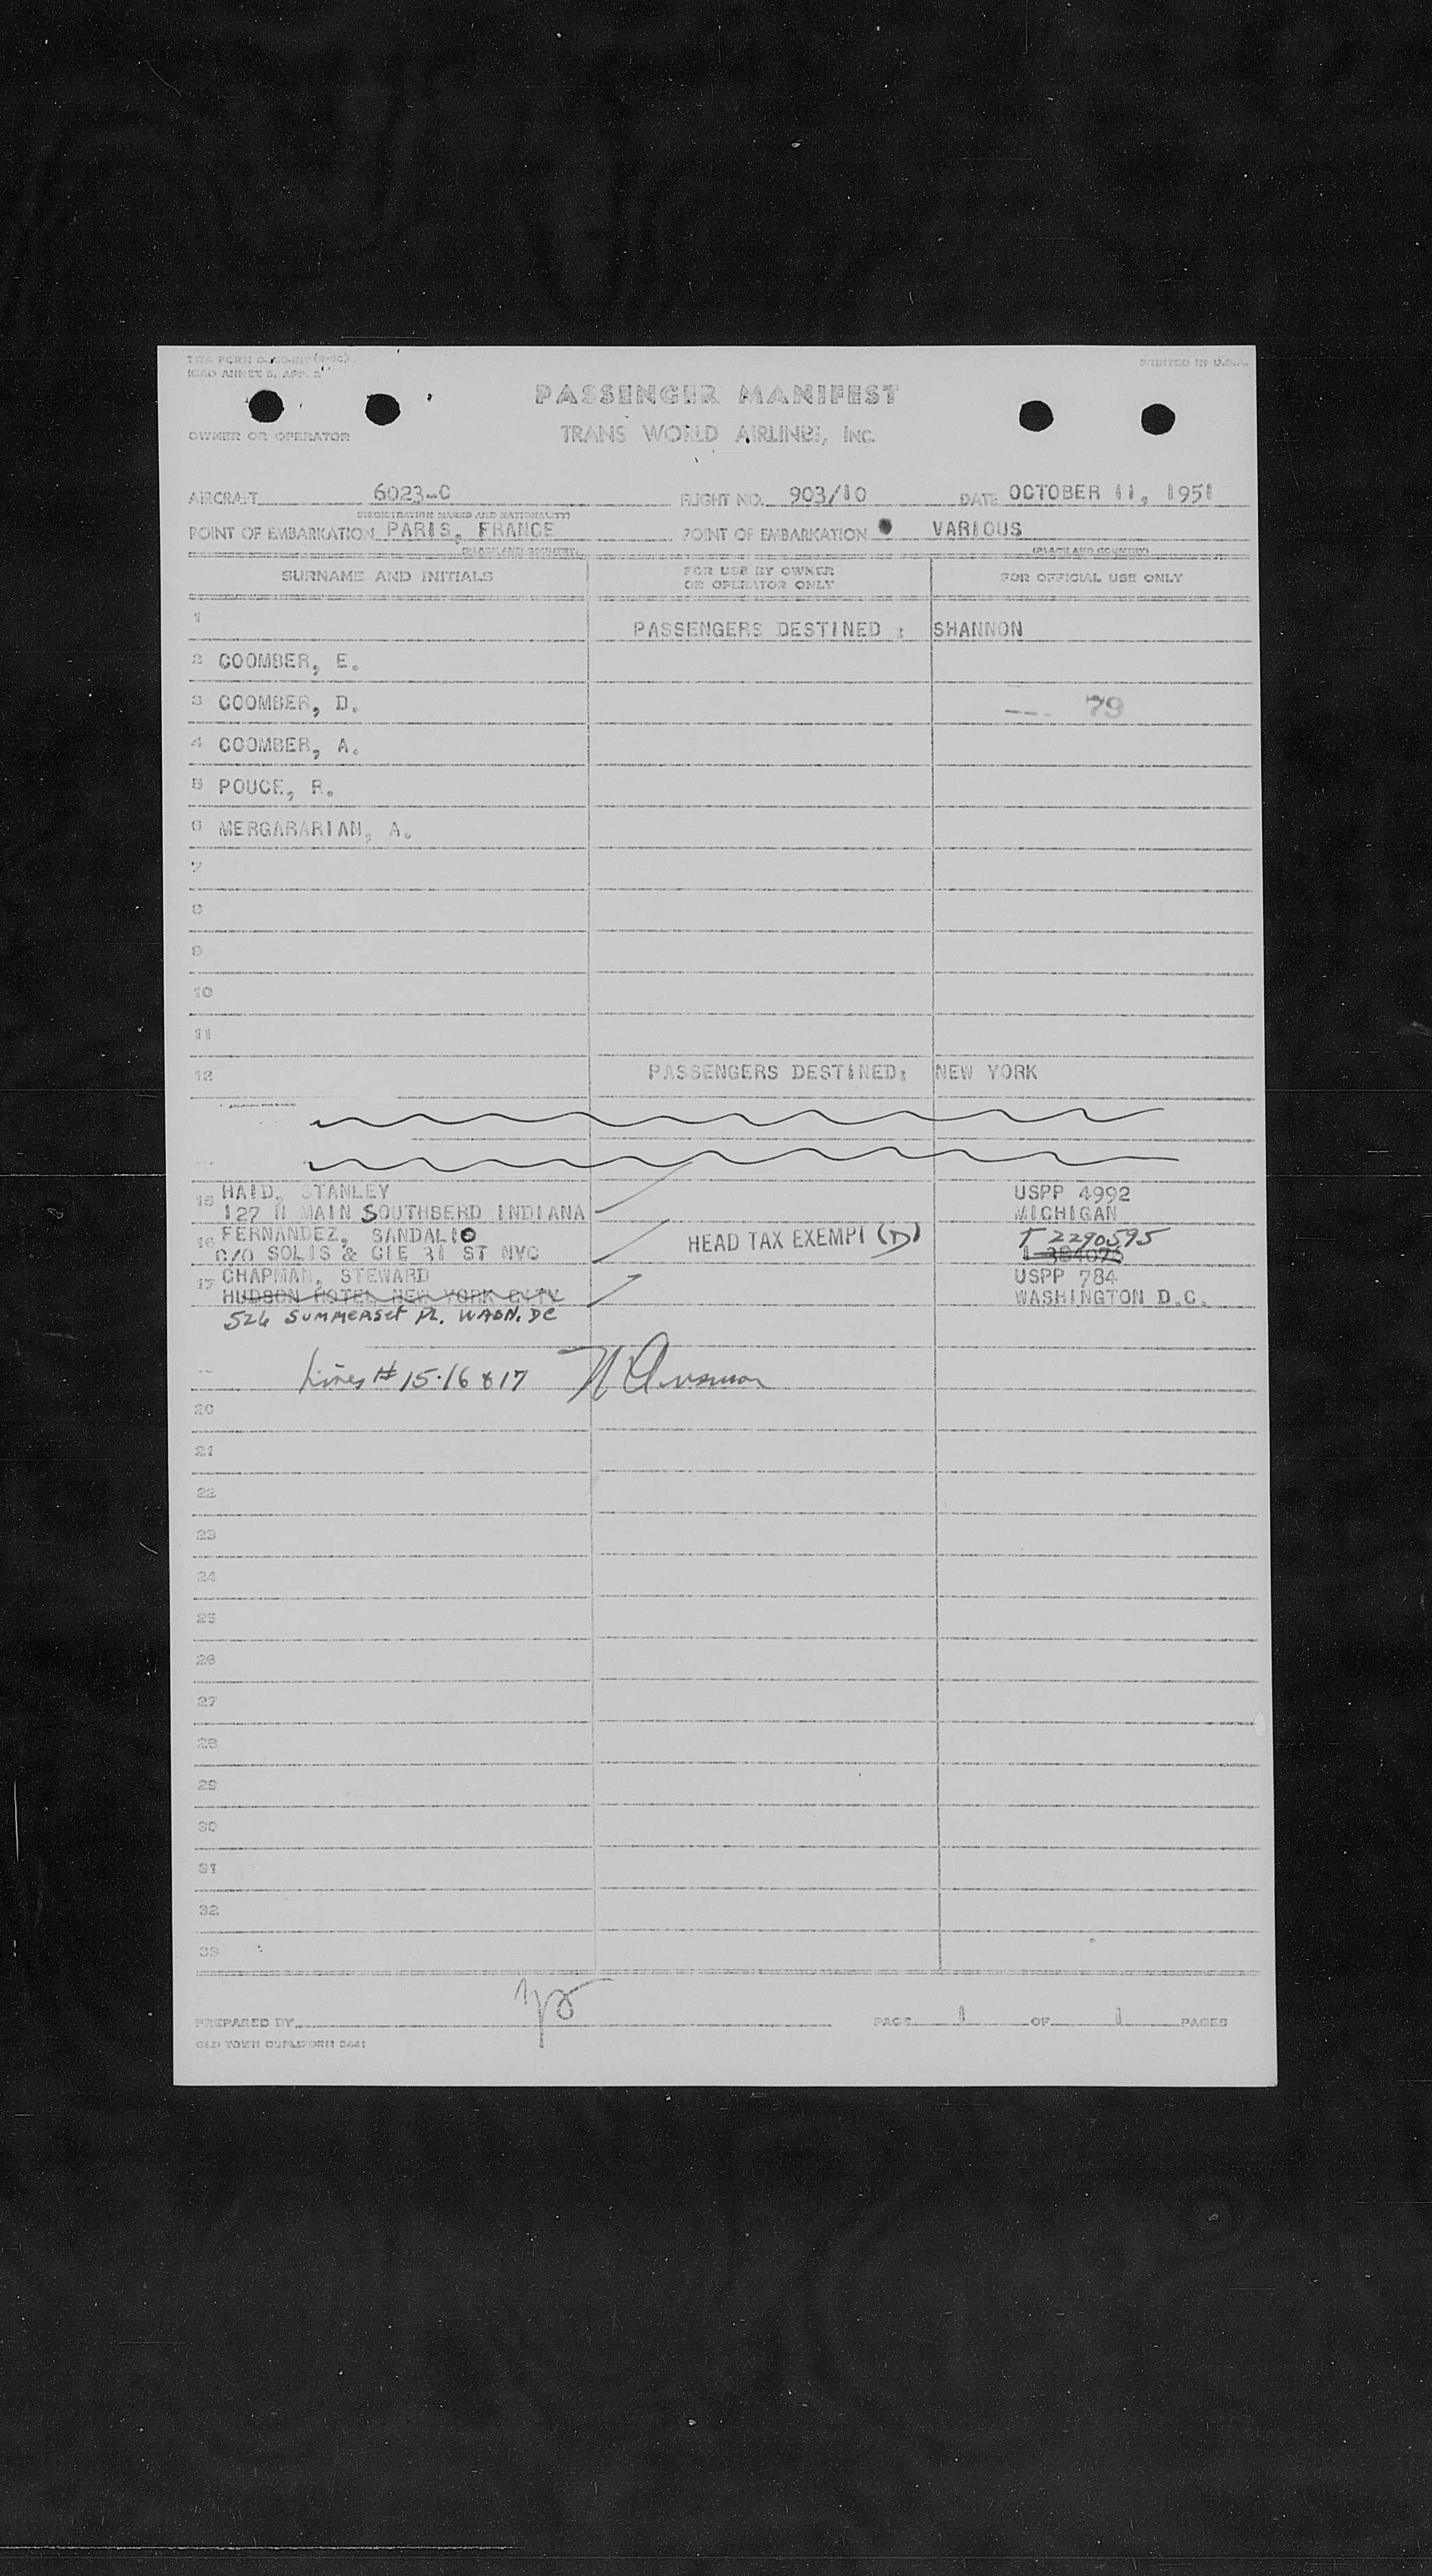 TWA FORM
ICAO ANNEX 9, APP. 2
PRINTED IN U.S.A.
PASSENGER MANIFEST
OWNER OR OPERATOR TRANS WORLD AIRLINES, INC.
AIRCRAFT 6023-C FLIGHT NO. 903/10 DATE OCTOBER 11, 1951
(REGISTRATION MARKS AND NATIONALITY)
POINT OF EMBARKATION PARIS, FRANCE POINT OF EMBARKATION VARIOUS
(PLACE AND COUNTRY) (PLACE AND COUNTRY)
SURNAME AND INITIALS FOR USE BY OWNER OR OPERATOR ONLY FOR OFFICIAL USE ONLY
1 PASSENGERS DESTINED : SHANNON
2 COOMBER, E.
3 COOMBER, D. 79
4 COOMBER, A.
5 POUCE, R.
6 MERGARARIAN, A.
7
8
9
10
11
12 PASSENGERS DESTINED: NEW YORK
15 HAID, STANLEY USPP 4992
127 N MAIN SOUTHBERD INDIANA MICHIGAN
16 FERNANDEZ, SANDALIO HEAD TAX EXEMPT (D) T 2290595
C/O SOLIS & CIE 31 ST NYC
17 CHAPMAN, STEWARD USPP 784
HUDSON HOTEL NEW YORK CITY WASHINGTON D.C.
526 SUMMERSET PL. WASN. DC
Lines # 15.16 & 17
20
21
22
23
24
25
26
27
28
29
30
31
32
33
PREPARED BY PAGE 1 OF 1 PAGES
OLD TOWN DUPLIFORM